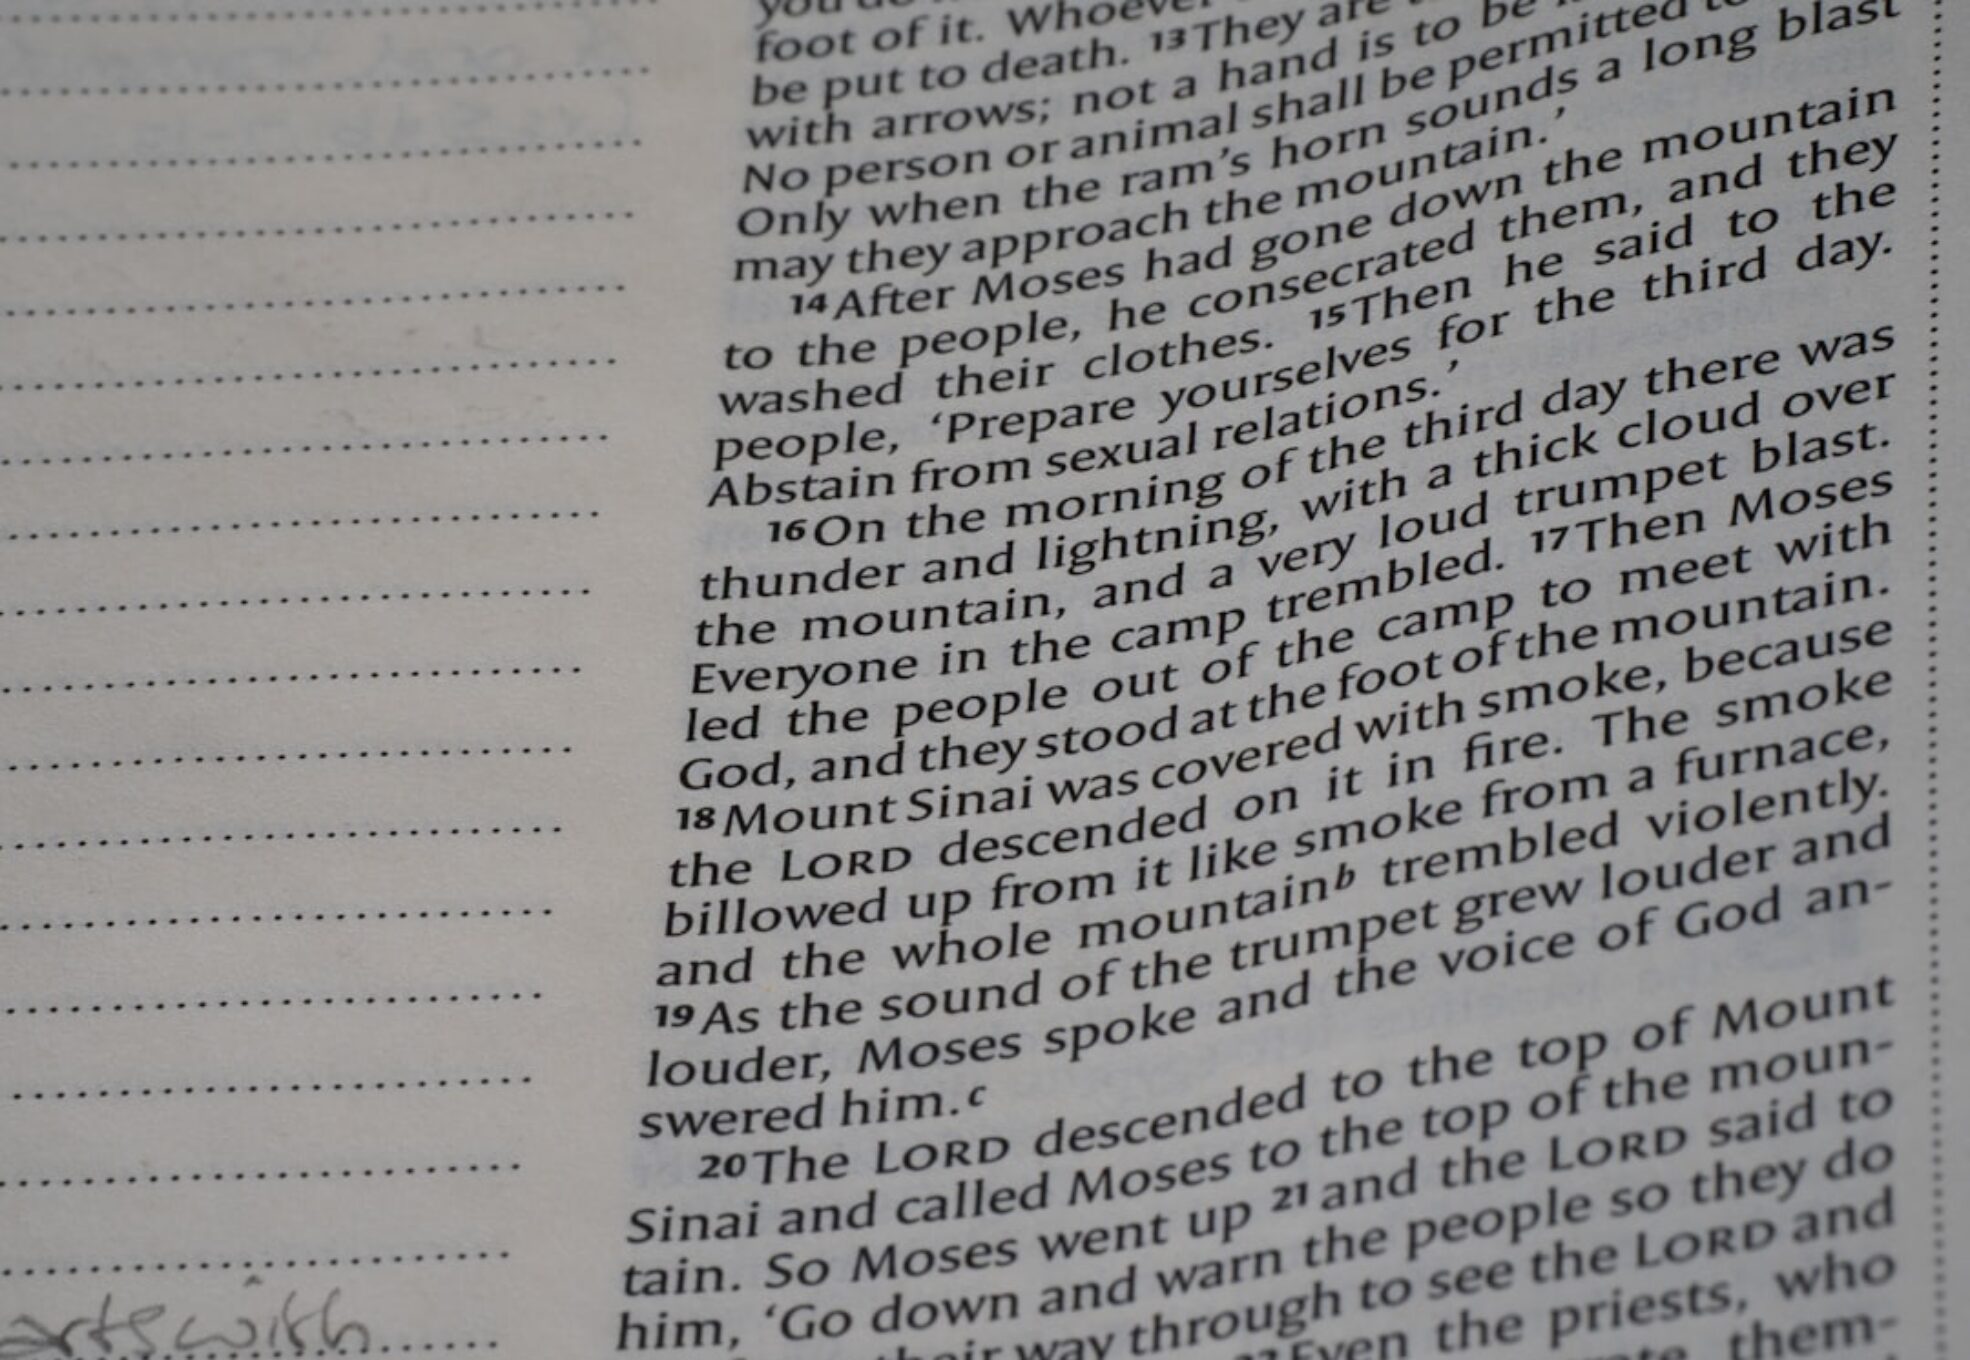 foot of it. Whoever
be put to death. 13They are
with arrows; not a hand is to be
No person or animal shall be permitted
Only when the ram's horn sounds a long blast
may they approach the mountain.'
14After Moses had gone down the mountain
to the people, he consecrated them, and they
washed their clothes. 15Then he said to the
people, 'Prepare yourselves for the third day.
Abstain from sexual relations.'
16On the morning of the third day there was
thunder and lightning, with a thick cloud over
the mountain, and a very loud trumpet blast.
Everyone in the camp trembled. 17Then Moses
led the people out of the camp to meet with
God, and they stood at the foot of the mountain.
18Mount Sinai was covered with smoke, because
the LORD descended on it in fire. The smoke
billowed up from it like smoke from a furnace,
and the whole mountainb trembled violently.
19As the sound of the trumpet grew louder and
louder, Moses spoke and the voice of God an-
swered him.c
20The LORD descended to the top of Mount
Sinai and called Moses to the top of the moun-
tain. So Moses went up 21and the LORD said to
him, 'Go down and warn the people so they do
way through to see the LORD and
Even the priests, who
them-
with